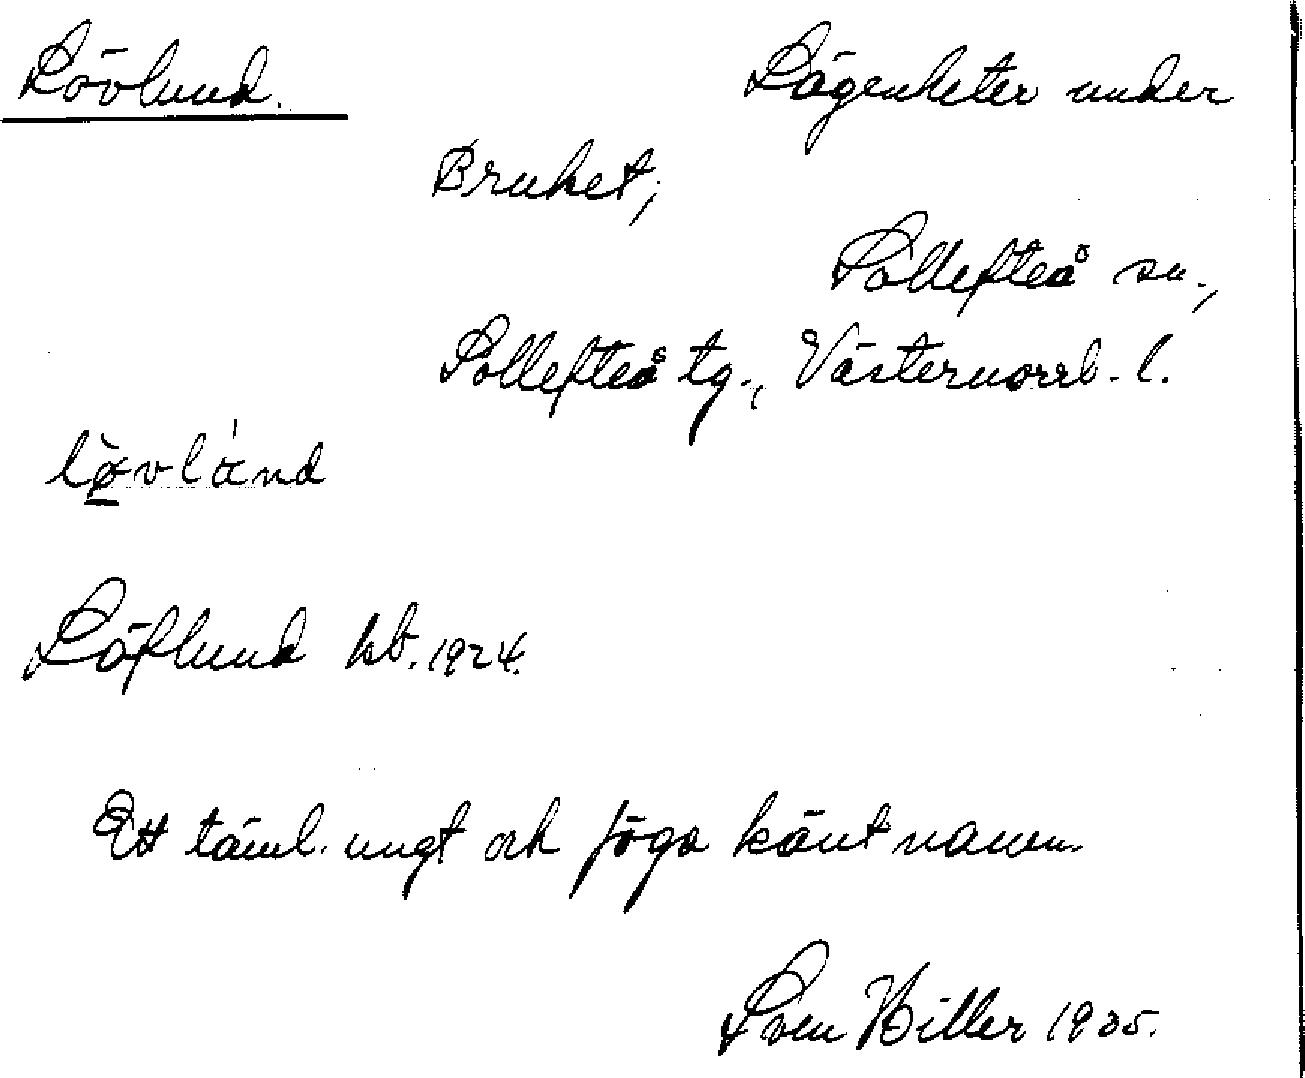 Lövlund. Lägenheter under
Bruket,
Sollefteå sn.,
Sollefteå tg., Västernorrl. l.
Löflund kb. 1924.
Ett täml. ungt och föga känt namn.
Sven Hiller 1935.